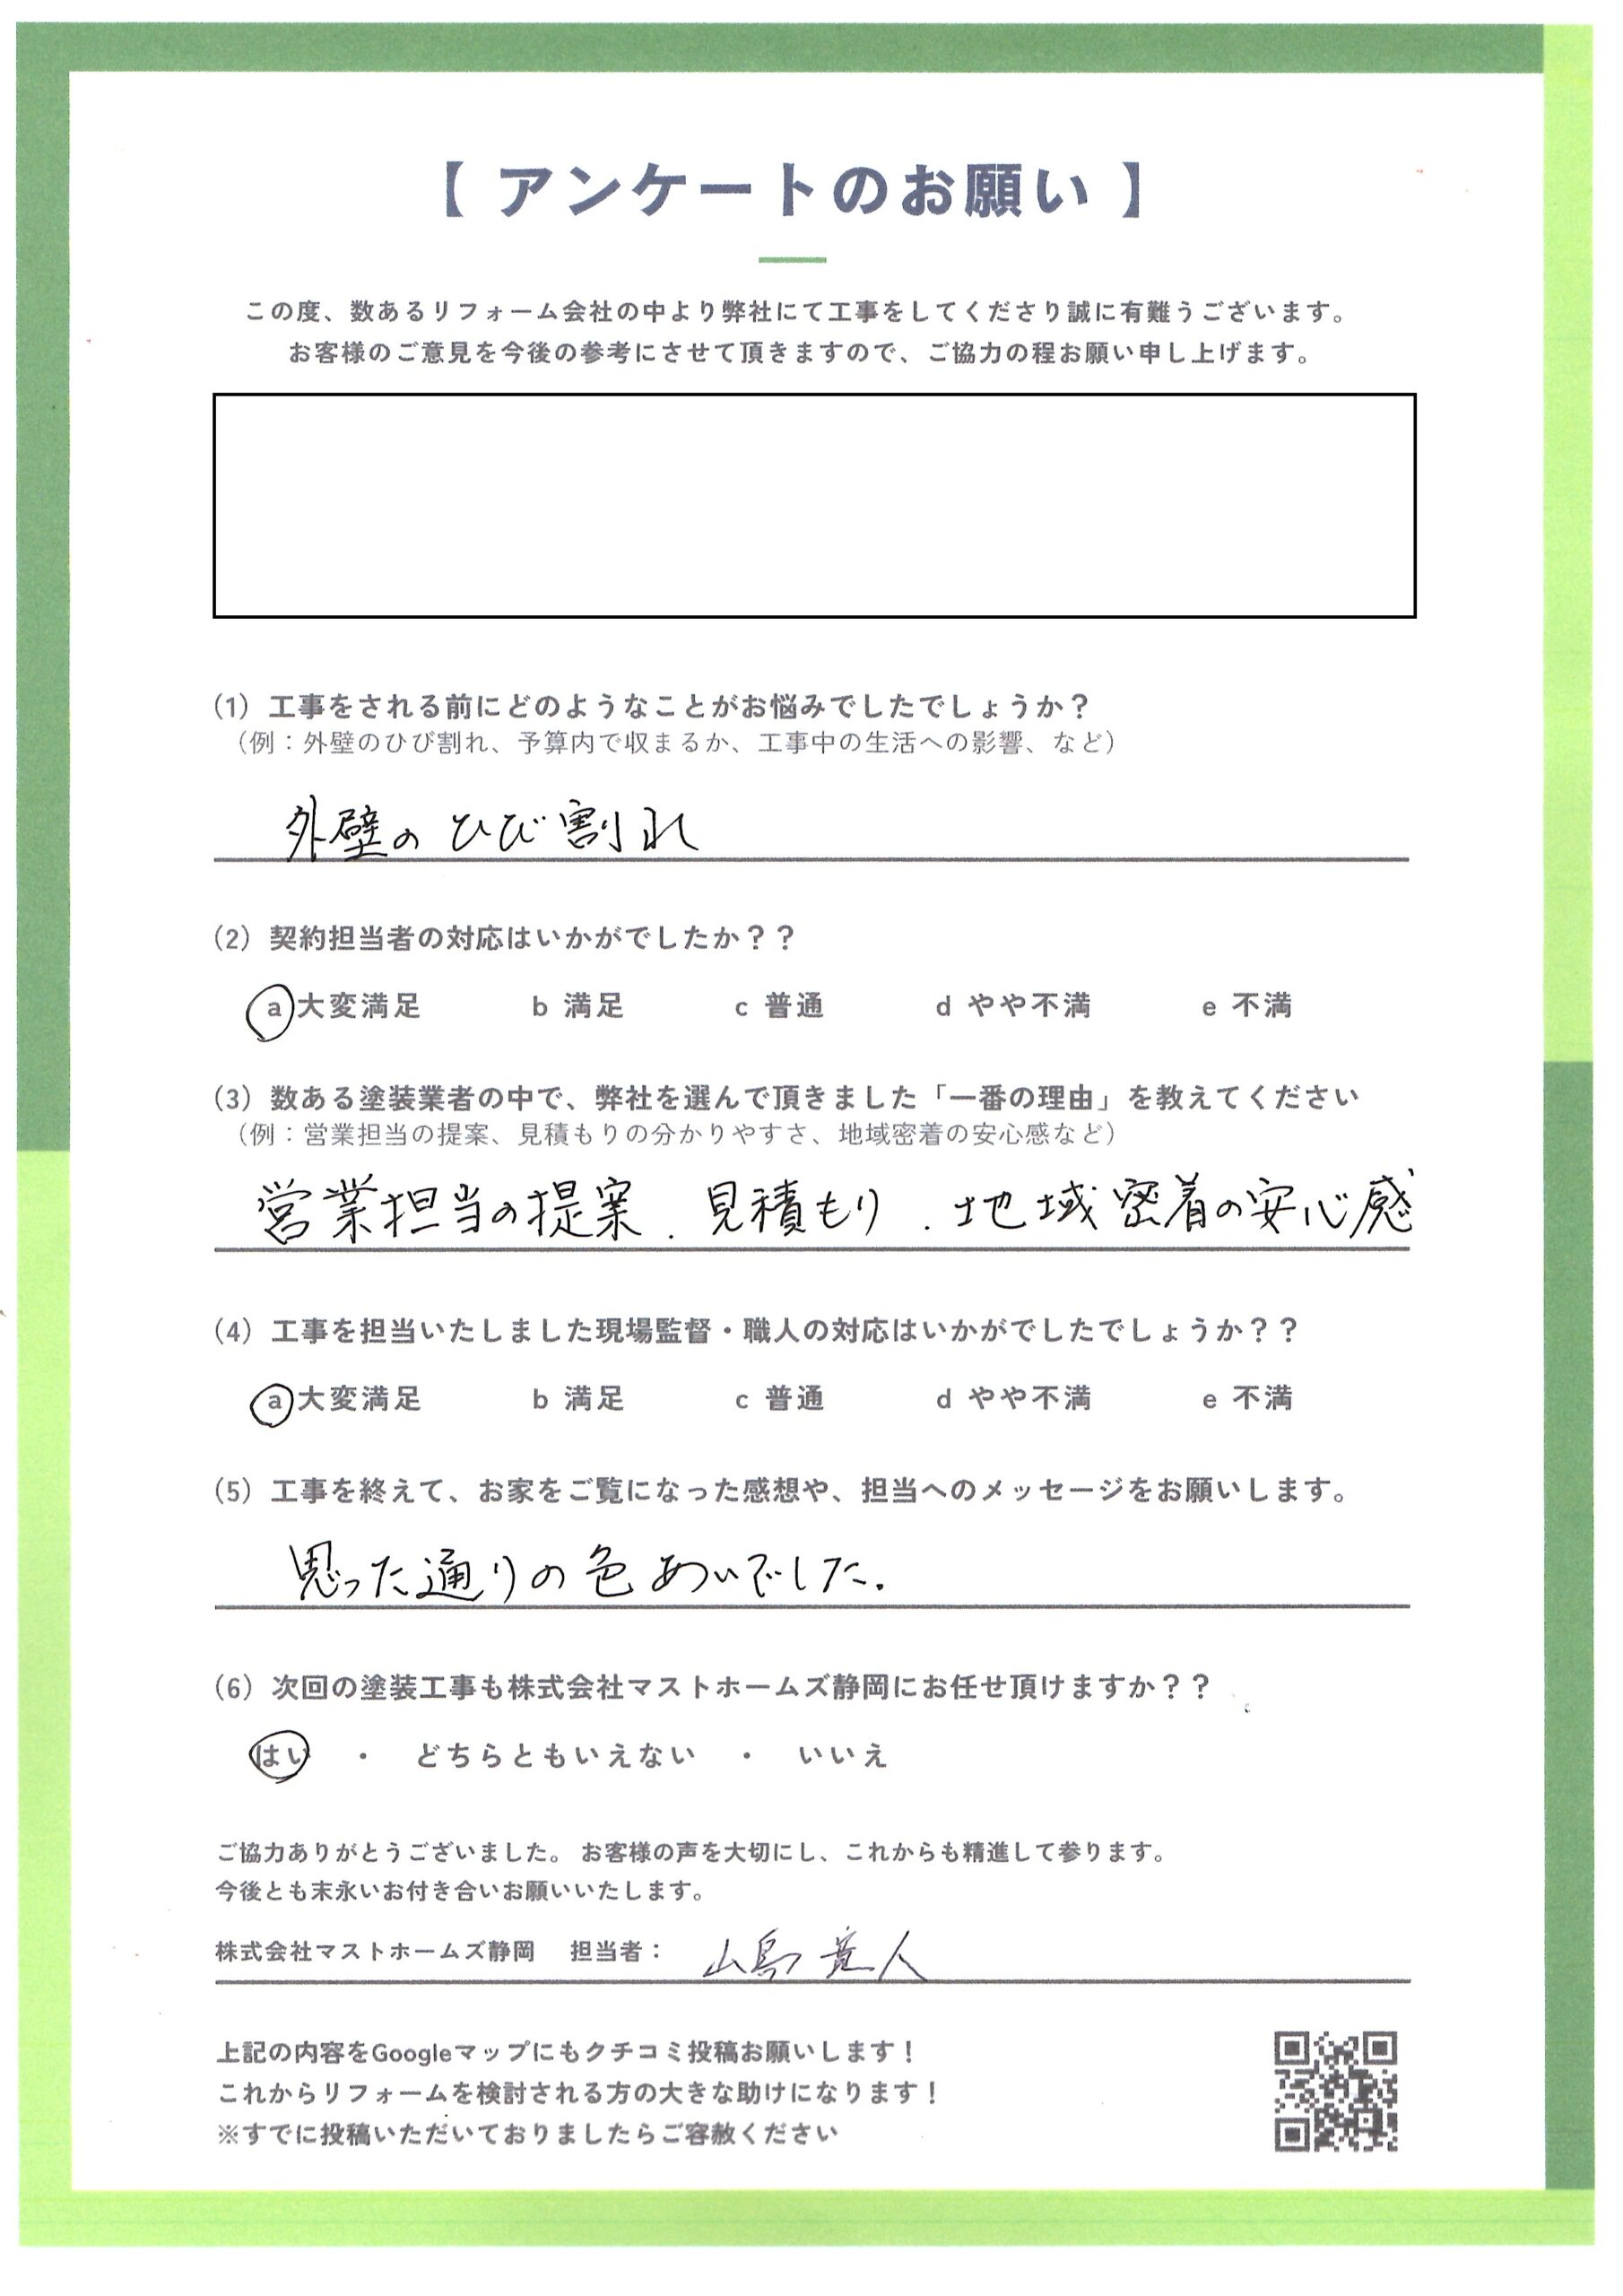 【 アンケートのお願い 】
この度、数あるリフォーム会社の中より弊社にて工事をしてくださり誠に有難うございます。
お客様のご意見を今後の参考にさせて頂きますので、ご協力の程お願い申し上げます。
(1) 工事をされる前にどのようなことがお悩みでしたでしょうか？
（例：外壁のひび割れ、予算内で収まるか、工事中の生活への影響、など）
外壁のひび割れ
(2) 契約担当者の対応はいかがでしたか？？
a 大変満足 b 満足 c 普通 d やや不満 e 不満
(3) 数ある塗装業者の中で、弊社を選んで頂きました「一番の理由」を教えてください
（例：営業担当の提案、見積もりの分かりやすさ、地域密着の安心感など）
営業担当の提案．見積もり．地域密着の安心感
(4) 工事を担当いたしました現場監督・職人の対応はいかがでしたでしょうか？？
a 大変満足 b 満足 c 普通 d やや不満 e 不満
(5) 工事を終えて、お家をご覧になった感想や、担当へのメッセージをお願いします。
思った通りの色あいでした.
(6) 次回の塗装工事も株式会社マストホームズ静岡にお任せ頂けますか？？
はい ・ どちらともいえない ・ いいえ
ご協力ありがとうございました。 お客様の声を大切にし、これからも精進して参ります。
今後とも末永いお付き合いお願いいたします。
株式会社マストホームズ静岡 担当者： 山島 人
上記の内容をGoogleマップにもクチコミ投稿お願いします！
これからリフォームを検討される方の大きな助けになります！
※すでに投稿いただいておりましたらご容赦ください